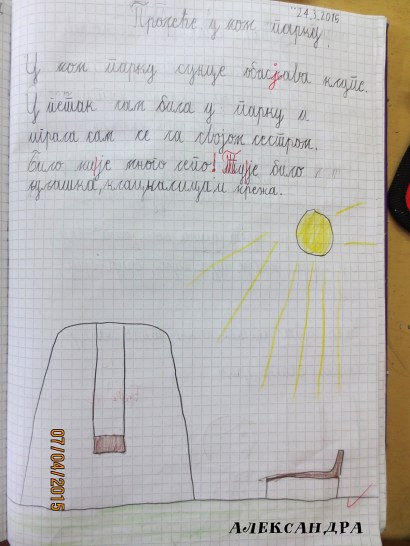 24.3.2015
Пролеће у мом парку
У мом парку сунце обасјава клупе.
У петак сам била у парку и
играла сам се са својом сестром.
Било ми је много лепо! Ту је било
и мрежа.
07/04/2015
АЛЕКСАНДРА